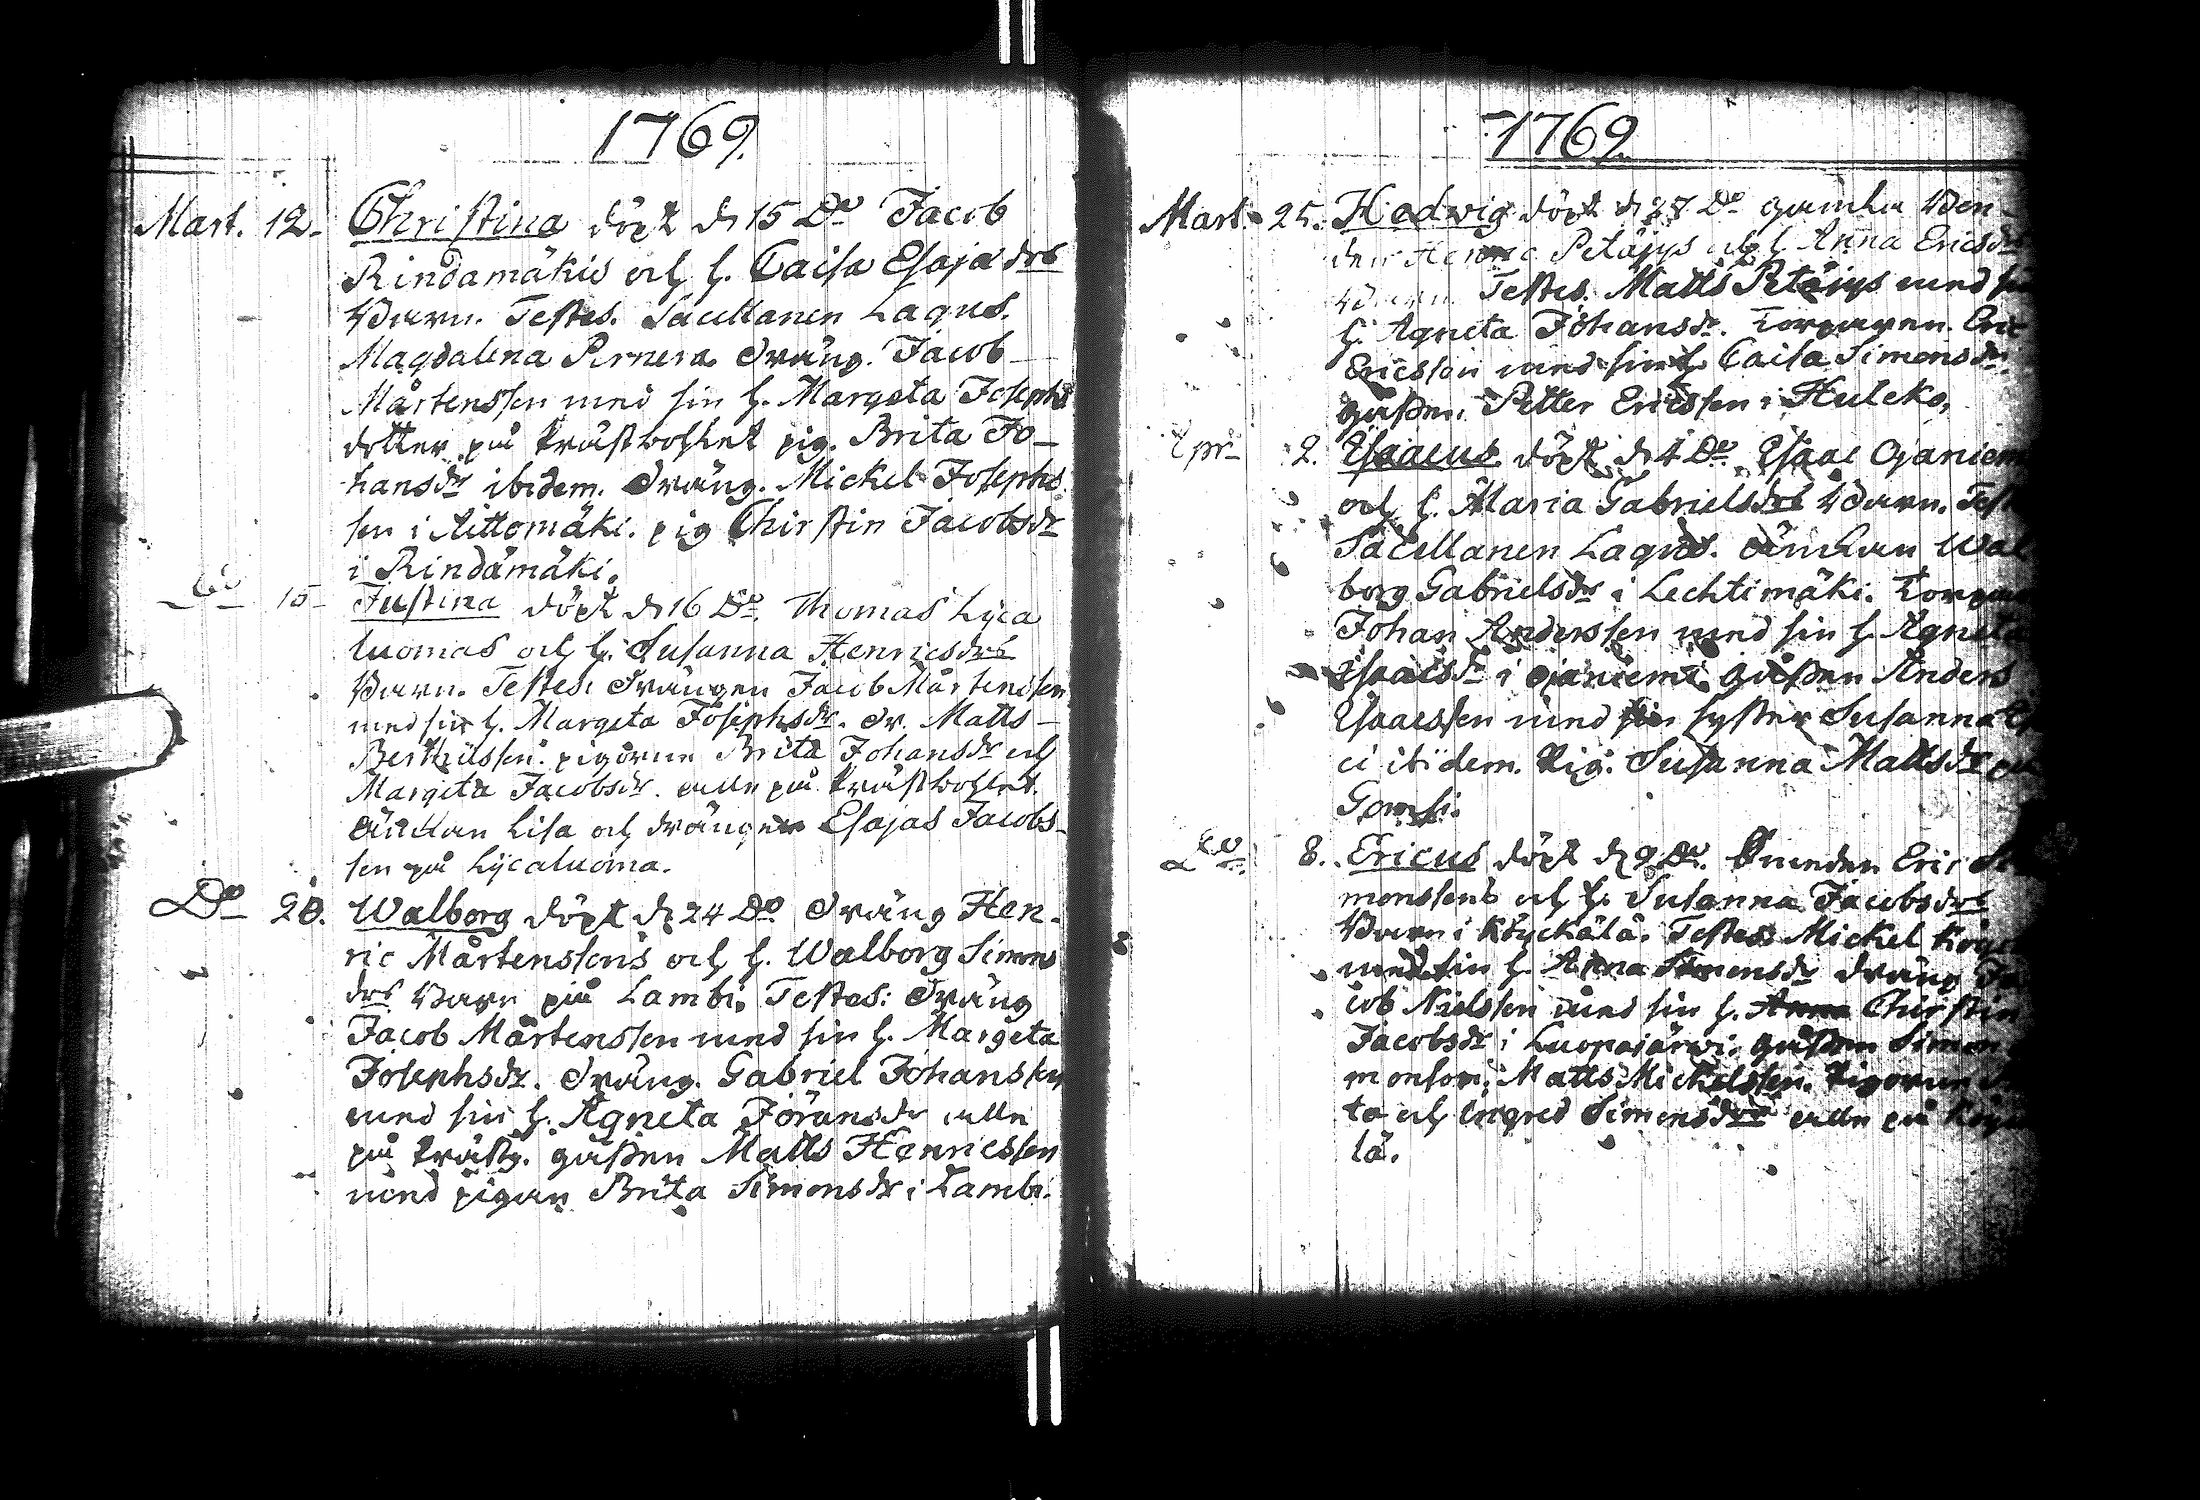 1769.
Mart. 12. Christina döpt d 15 Do Jacob
Rindamäkis och h. Caisa Esajædrs
Barn. Testes. Sacellanen Lagus.
Magdalena Pernera. Dräng. Jacob
Mårtenssen med sin h. Margeta Josephs
dotter på Prästbohlet pig. Brita Jo-
hansdr ibidem. Dräng. Mickel Josephs
sen i Aittomäki. pig Chirstin Jacobsdr
i Rindämäki.
Do 15 Justina döpt d 16 Do. Thomas Lyca
luomas och h. Susanna Henricsdrs
Barn. Testes: Drängen Jacob Mårtenssen
med sin h. Margeta Josephsdr. Dr. Matts
Berthilssen. pigorne Brita Johansdr och
Margeta Jacobsdr. alle på Prästbohlet.
Änckan Lisa och drängen Esajas Jacobs-
sen på Lycaluoma.
Do 20. Walborg döpt d 24 Do Dräng Hen-
ric Mårtenssens och h. Walborg Simons
drs Barn på Lambi. Testes: Dräng
Jacob Mårtenssen med sin h. Margeta
Josephsdr. Dräng. Gabriel Johanssen
med sin h. Agneta Jöransdr alle
på Prästb. gåssen Matts Henricssen
med pigan Brita Simonsdr i Lambi.
1769.
Mart. 25. Hedwig döpt d 27 Do gamla Bon-
den Henric Petäjys och h. Anna Ericsdrs
Barn. Testes. Matts Petäjys med
h. Agneta Johansdr. Torparen. Eric
Ericssen med sin h. Caisa Simonsdr.
gåssen. Petter Ericssen i Hulcko.
Apr 2. Esaacus döpt d 4 Do Esaac Ojaniem
och h. Maria Gabrielsdrs Barn. Test
Sacellanen Lagus. Änckan Wal
borg Gabrielsdr i Lechtimäki. Torpa
Johan Anderssen med sin h. Agneta
Esaacsdr i Ojaniemi. gåssen Anders
Esaacssen med sin syster Susanna
ibidem. Pig. Susanna Mattsdr
Gomsi.
Do 8. Ericus döpt d 9 Do. Bonden Eric Si
monssens och h. Susanna Jacobsdrs
Barn i Köyckälä. Testes: Mickel Köyc
med sin h. Anna Simonsdr dräng Ja
cob Nielssen med sin h. Chirstin
Jacobsdr i Luopajärwi. gåssen Simon
monson. Matts Mickelssen. Pigorne
ta och Ingred Simonsdrr alle på Köyc
lä.